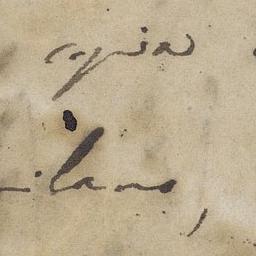 copia
ilano,